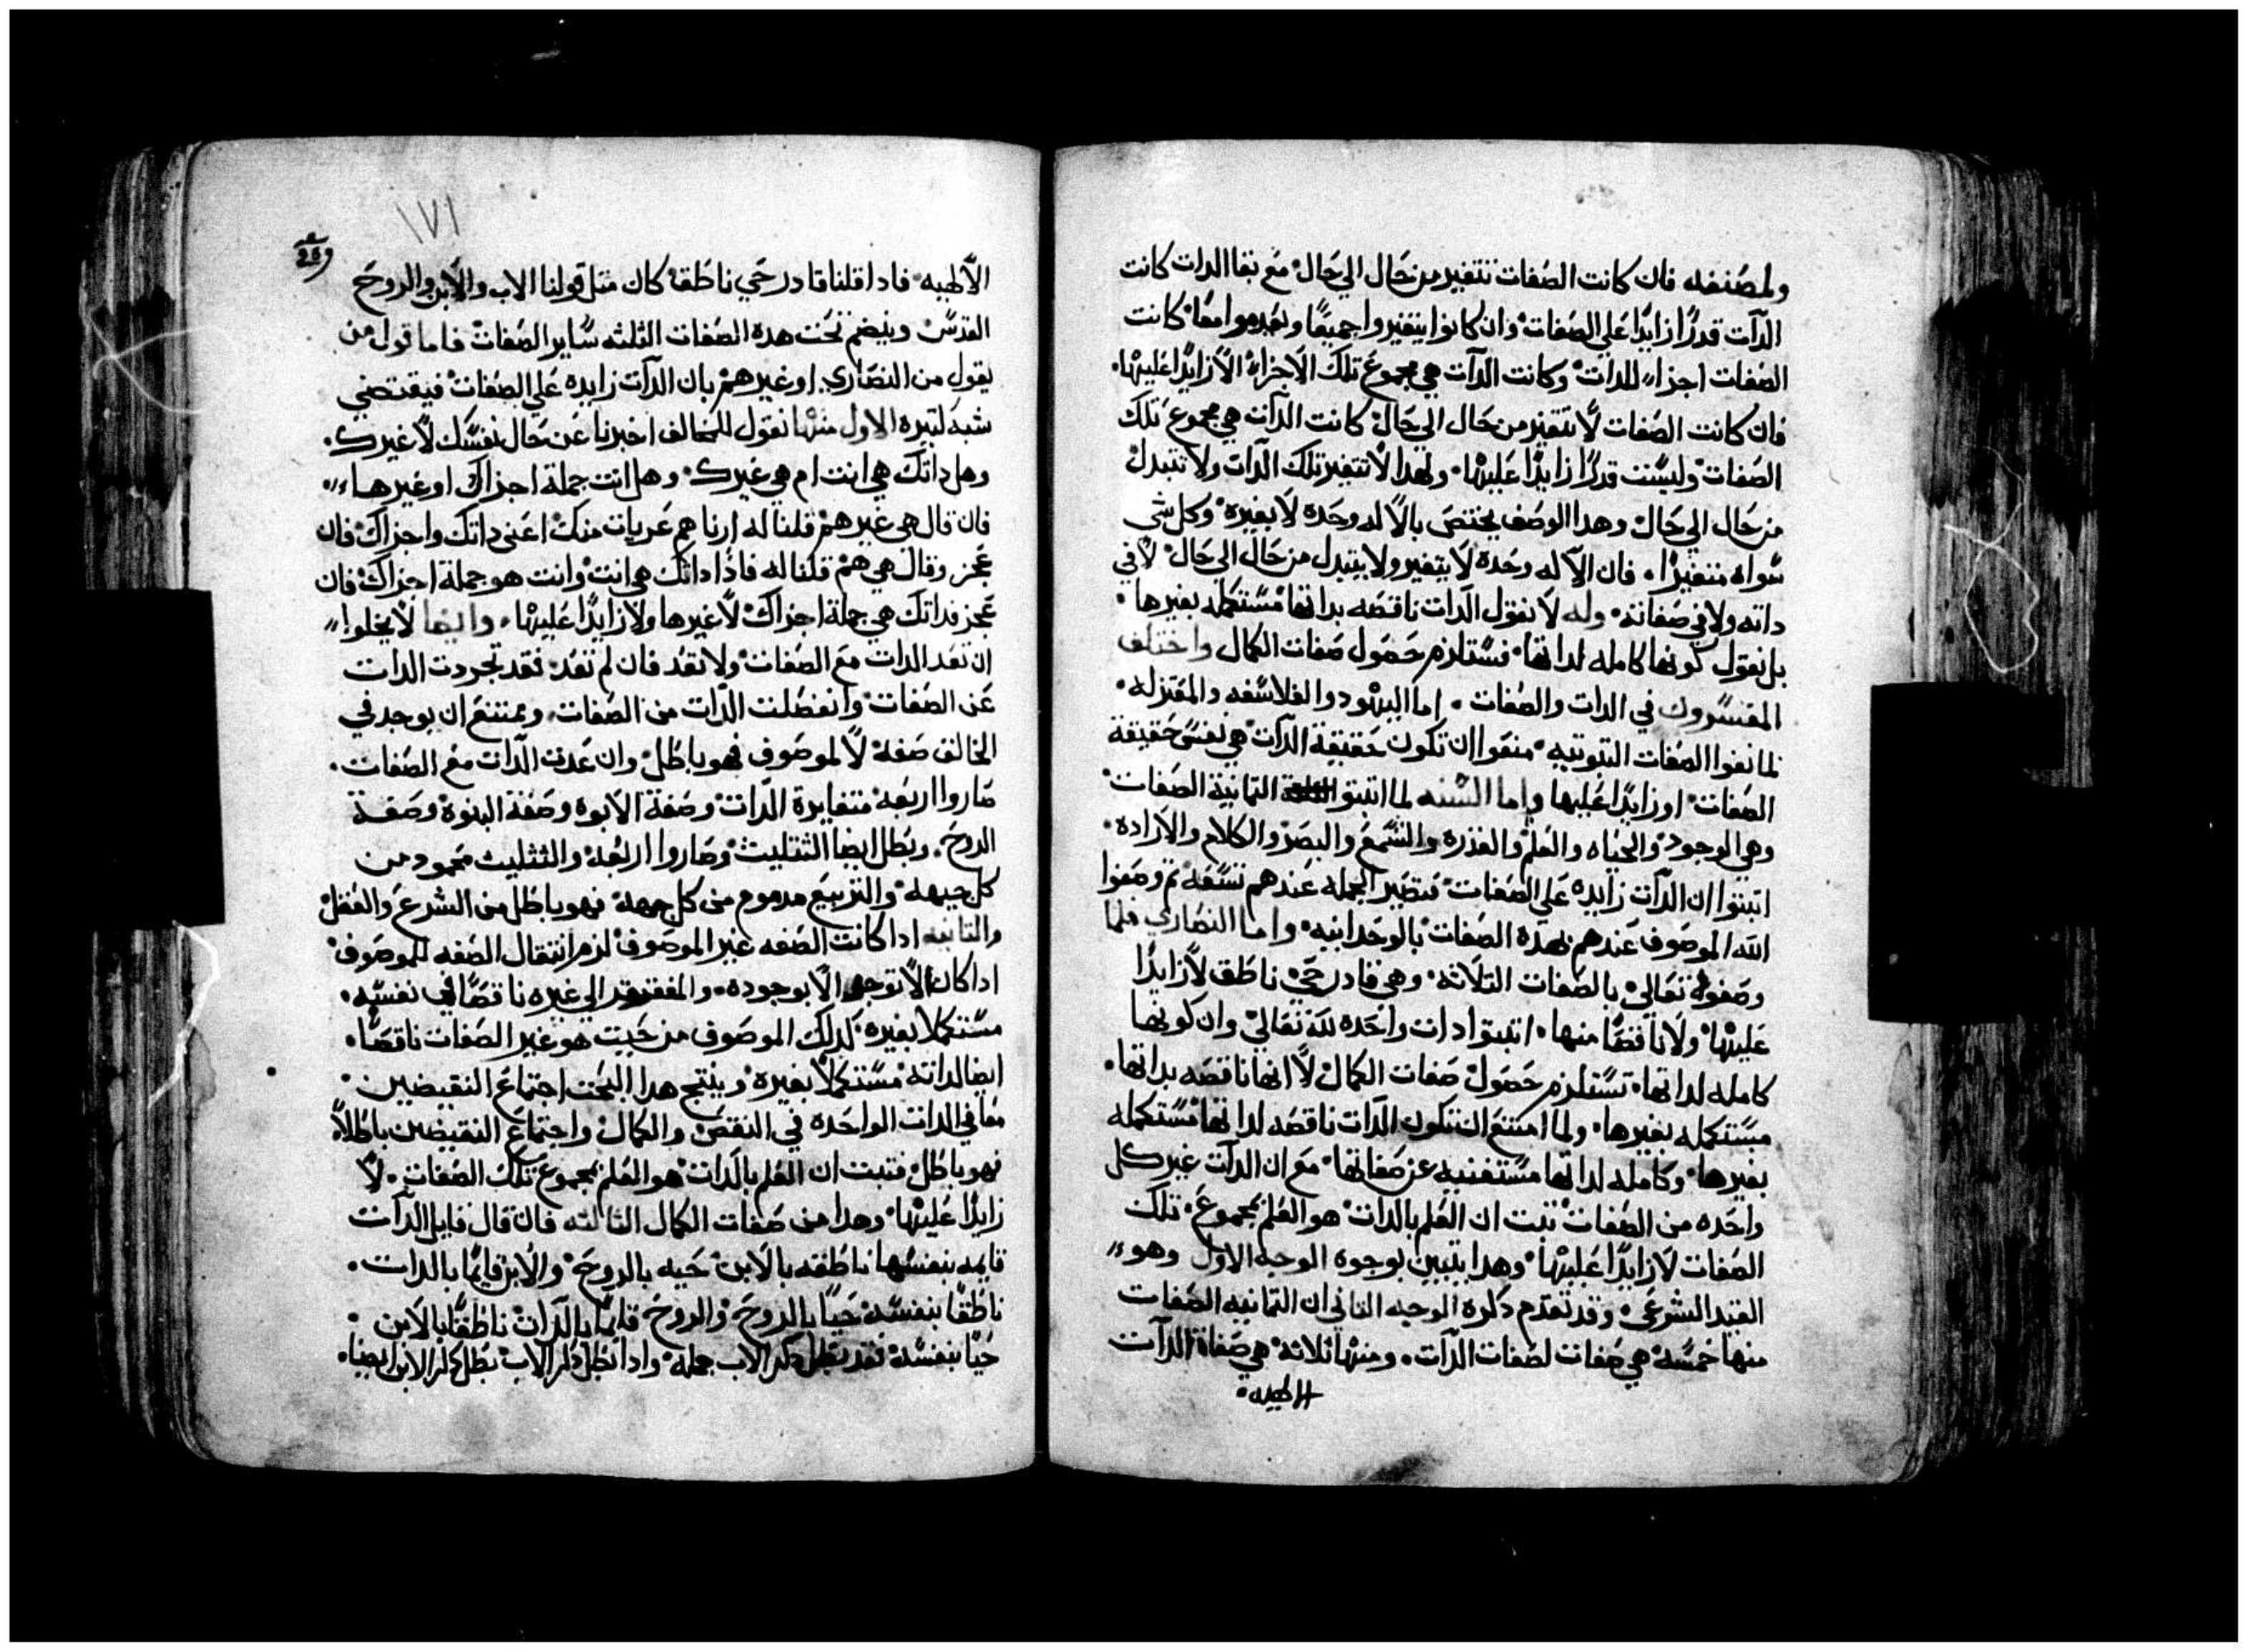 ولمصنفه فان كانت الصفات تتغير من حال الي حال مع بقا الدات كانت
الدات قدرًا زايدًا علي الصفات وان كانوا يتغيروا جميعًا ويعدموا معًا كانت
الصفات اجزاء للدات وكانت الدات هي مجموع تلك الاجزاء لا زايدًا عليها
فان كانت الصفات لا تتغير من حال الي حال كانت الدات هي مجموع تلك
الصفات وليست قدرًا زايدًا عليها ولهدا لا تتغير تلك الدات ولا تتبدل
من حال الي حال وهدا الوصف يختص بالاله وحده لا بغيره وكل شي
سواه متغيرًا فان الاله وحده لا يتغير ولا يتبدل من حال الي حال لا في
داته ولا في صفاته وله لا نقول الدات ناقصه بداتها مستكمله بغيرها
بل نقول كونها كامله لداتها فستلزم حصول صفات الكمال واختلف
المفسرون في الدات والصفات اما اليهود والفلاسفه والمعتزله
لما نفوا الصفات التبوتيه منعوا ان تكون حقيقة الدات هي نفس حقيقة
الصفات او زايدًا عليها واما السنه لما اتبتوا التمانية الصفات
وهي الوجود والحياه والعلم والقدره والسمع والبصر والكلام والاراده
اتبتوا ان الدات زايده علي الصفات فتصير الجمله عندهم تسعه تم وصفوا
الله الموصوف عندهم بهده الصفات بالوحدانيه واما النصاري فلما
وصفوه تعالي بالصفات التلاته وهي قادر حي ناطق لا زايدًا
عليها ولا ناقصًا منها اتبتوا دات واحده لله تعالي وان كونها
كامله لداتها تستلزم حصول صفات الكمال لا انها ناقصه بداتها
مستكمله بغيرها ولما امتنع ان تكون الدات ناقصه لداتها مستكمله
بغيرها وكامله لداتها مستغنيه عن صفاتها مع ان الدات غير كل
واحده من الصفات تبت ان العلم بالدات هو العلم بمجموع تلك
الصفات لا زايدًا عليها وهدا يتبين بوجوه الوجه الاول وهو
القيد الشرعي وقد تقدم دكره الوجه التاني ان التمانيه الصفات
منها خمسه هي صفات لصفات الدات ومنها تلاتة هي صفاة الدات
الالهيه
١٧١
الالهيه فادا قلنا قادر حي ناطق كان متل قولنا الاب والابن والروح
القدس وينضم تحت هده الصفات التلته ساير الصفات فاما قول من
يقول من النصاري او غيرهم بان الدات زايده علي الصفات فيقتضي
شبه كتيره الاول منها نقول للمخالف اخبرنا عن حال نفسك لا غيرك
وهل داتك هي انت ام هي غيرك وهل انت جملة اجزاك او غيرها
فان قال هي غيرهم قلنا له ارنا هم عريات منك اعني داتك واجزاك فان
عجز وقال هي هم قلنا له فادًا داتك هي انت وانت هو جملة اجزاك فان
عجز فداتك هي جملة اجزاك لا غيرها ولا زايدًا عليها وايضا لا يخلوا
ان تعد الدات مع الصفات ولا تعد فان لم تعد فقد تجردت الدات
عن الصفات وانفصلت الدات من الصفات ويمتنع ان يوجد في
الخالق صفة لا لموصوف فهو باطل وان عدت الدات مع الصفات
صاروا اربعه متغايرة الدات وصفة الابوه وصفة البنوة وصفة
الروح وبطل ايضا التتليت وصاروا اربعه والتتليت محمود من
كل جيهه والتربيع مدموم من كل جهه فهو باطل من الشرع والعقل
والتانيه ادا كانت الصفه غير الموصوف لزم انتقال الصفه للموصوف
ادا كان لا توجد الا بوجوده والمفتقر الي غيره ناقصًا في نفسه
مستكملا بغيره كدلك الموصوف من حيت هو غير الصفات ناقصًا
ايضا لداته مستكملًا بغيره وينتج هدا البحت اجتماع النقيضين
معا في الدات الواحده في النقص والكمال واجتماع النقيضين باطلًا
فهو باطل فتبت ان العلم بالدات هو العلم بمجموع تلك الصفات لا
زايدًا عليها وهدا من صفات الكمال التالته فان قال قايل الدات
قايمه بنفسها ناطقه بالابن حيه بالروح والابن قايمًا بالدات
ناطقًا بنفسه حيًا بالروح والروح قايمًا بالدات ناطقًا بالابن
حيًا بنفسه فقد بطل دكر الاب جمله وادا بطل دكر الاب بطل دكر الابن ايضا